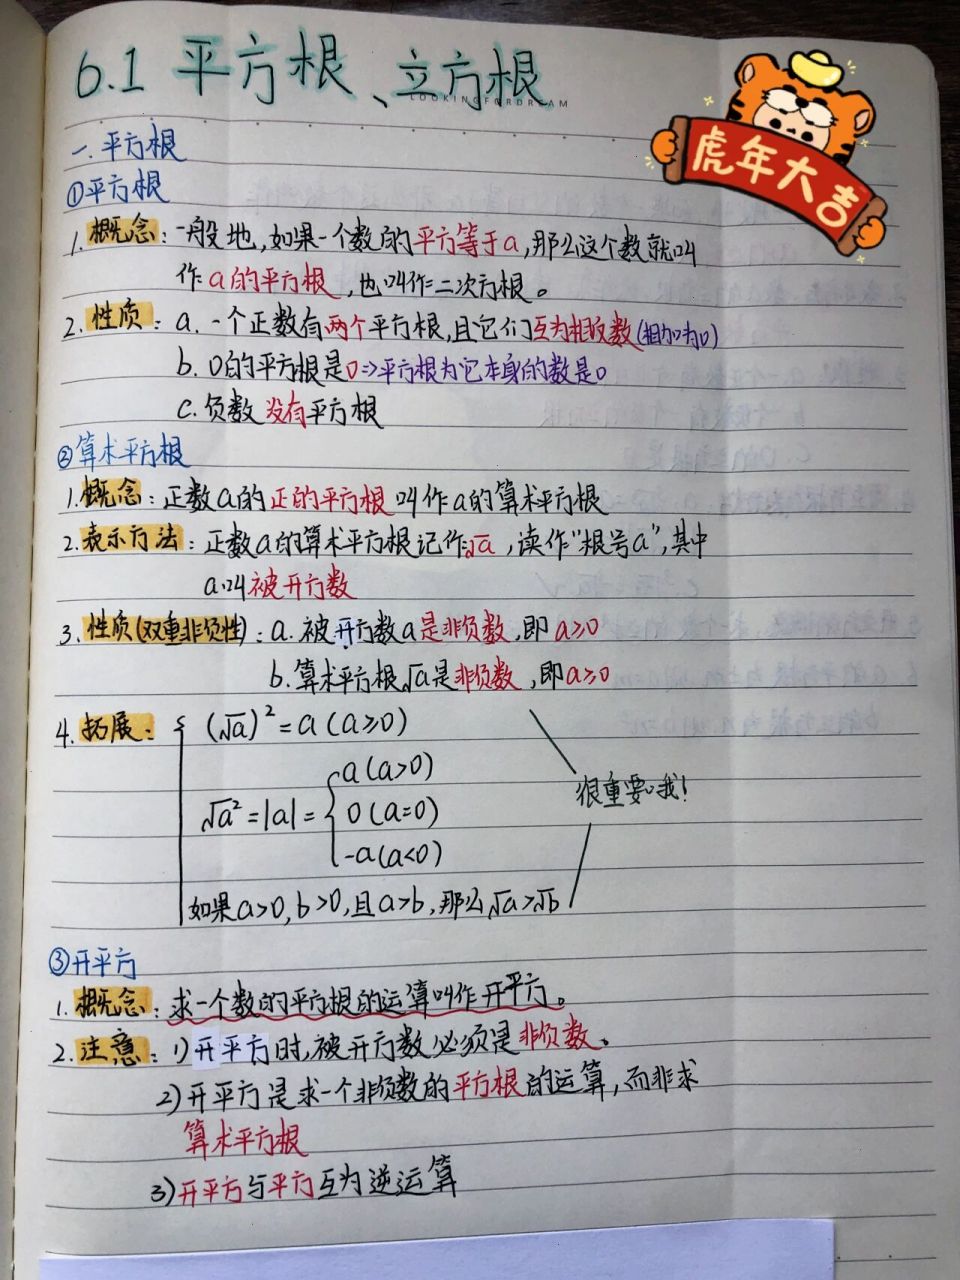 6.1 平方根、立方根
LOOKINGFORDREAM
虎年大吉
一.平方根
①平方根
1.概念:一般地,如果一个数的平方等于a,那么这个数就叫
作a的平方根,也叫作二次方根。
2.性质:a.一个正数有两个平方根,且它们互为相反数(相加为0)
b.0的平方根是0⇒平方根为它本身的数是0
c.负数没有平方根
②算术平方根
1.概念:正数a的正的平方根叫作a的算术平方根
2.表示方法:正数a的算术平方根记作√a,读作"根号a",其中
a叫被开方数
3.性质(双重非负性):a.被开方数a是非负数,即a≥0
b.算术平方根√a是非负数,即a≥0
4.拓展:(√a)²=a(a≥0)
a(a>0)
很重要哦!
√a²=|a|= 0(a=0)
-a(a<0)
如果a>0,b>0,且a>b,那么√a>√b
③开平方
1.概念:求一个数的平方根的运算叫作开平方。
2.注意:1)开平方时,被开方数必须是非负数。
2)开平方是求一个非负数的平方根的运算,而非求
算术平方根
3)开平方与平方互为逆运算